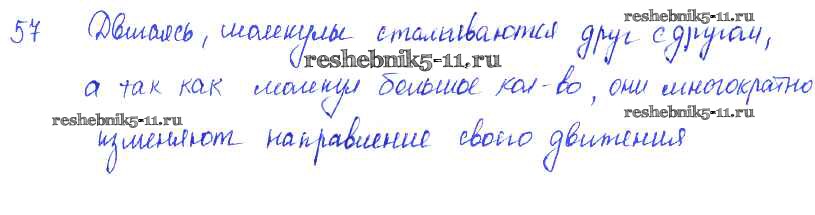 57 Двигаясь, молекулы сталкиваются друг с другом,
reshebnik5-11.ru
reshebnik5-11.ru
а так как молекул большое кол-во, они многократно
reshebnik5-11.ru
reshebnik5-11.ru
изменяют направление своего движения